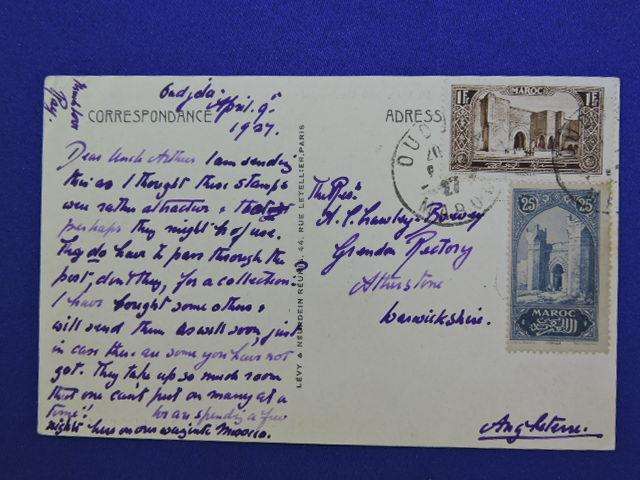 Oudjda
April 9th
1927.
CORRESPONDANCE
Dear Uncle Arthur I am sending
this as I thought these stamps
were rather attractive &
perhaps they might be of use.
They do have to pass through the
post, don't they, for a collection.
I have bought some others &
will send them as well soon just
in case there are some you have not
got. They take up so much room
that one can't put on many at a
time! We are spending a few
nights here on our way into Morocco.
LÉVY & NEURDEIN RÉUNIS, 44, RUE LETELLIER, PARIS
ADRESSE
The Rev:
Grendon Rectory
Atherstone
Warwickshire.
Angleterre.
1F MAROC 1F
25 25
MAROC
OUDJDA
MAROC